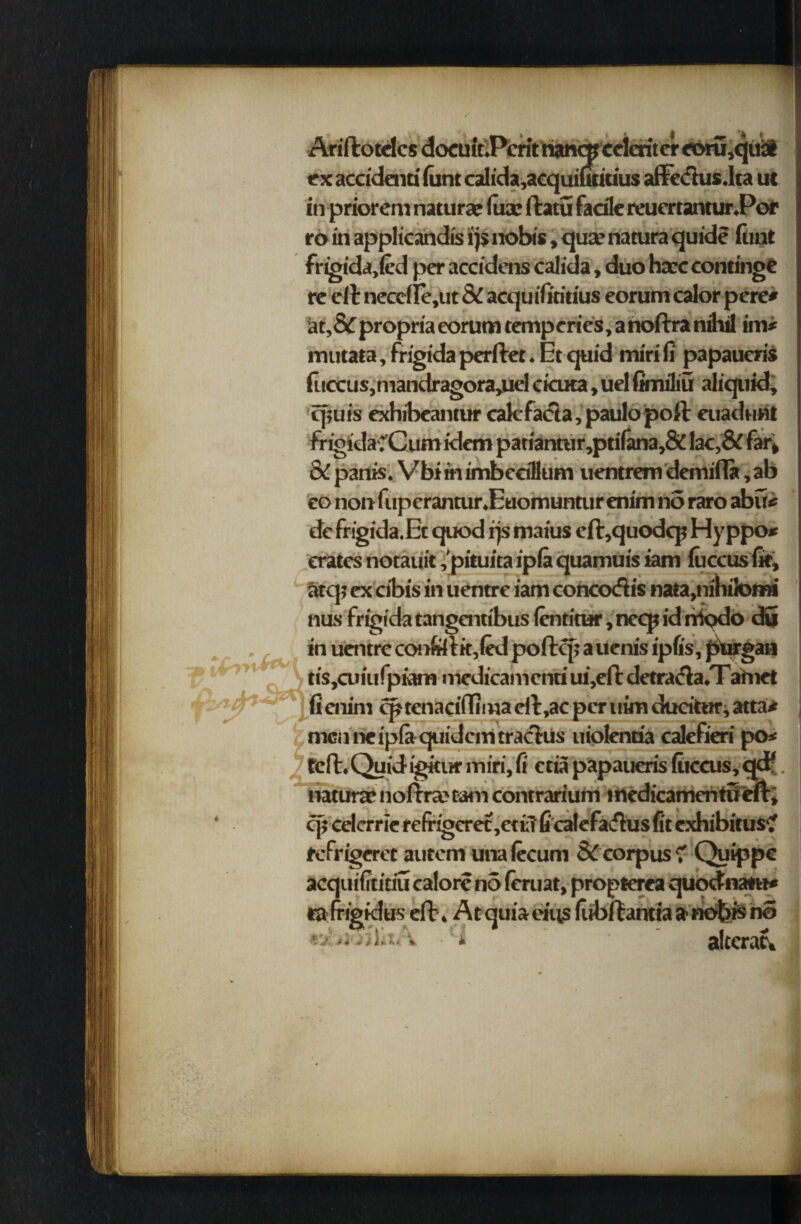 Ariſtoteles docuit.Perit nanq; celeriter eorũ,quæ
ex accidenti ſunt calida,acquiſititius affectus.Ita ut
in priorem naturæ ſuæ ſtatũ facile reuertantur.Por
ro in applicandis ijs nobis, quæ natura quidẽ ſunt
frigida,ſed per accidens calida, duo hæc continge
re eſt neceſſe,ut & acquiſititius eorum calor pere⸗
at,& propria eorum temperies, a noſtra nihil im⸗
mutata, frigida perſtet. Et quid miri ſi papaueris
ſuccus,mandragora,uel cicuta, uel ſimiliũ aliquid,
q;uis exhibeantur calefacta, paulo poſt euadunt
frigida? Cum idem patiantur,ptiſana,& lac,& far,
& panis. Vbi in imbecillum uentrem demiſſa, ab
eo non ſuperantur.Euomuntur enim nõ raro abũ⸗
de frigida.Et quod ijs maius eſt,quodq; Hyppo⸗
crates notauit, pituita ipſa quamuis iam ſuccus ſit,
atq; ex cibis in uentre iam concoctis nata,nihilomi
nus frigida tangentibus ſentitur, neq; id modo dũ
in uentre conſiſtit,ſed poſtq; a uenis ipſis, purgan
tis,cuiuſpiam medicamenti ui,eſt detracta.Tamet
ſi enim q; tenaciſſima eſt,ac per uim ducitur, atta⸗
men ne ipſa quidem tractus uiolentia calefieri po⸗
teſt. Quid igitur miri, ſi etiã papaueris ſuccus, qd
naturæ noſtræ tam contrarium medicamentũ eſt,
q; celerrie refrigeret,etiã ſi calefactus ſit exhibitus?
refrigeret autem una ſecum & corpus? Quippe
acquiſititiũ calorẽ nõ ſeruat, propterea quod natu⸗
ra frigidus eſt. At quia eius ſubſtantia a nobis nõ
alterat,